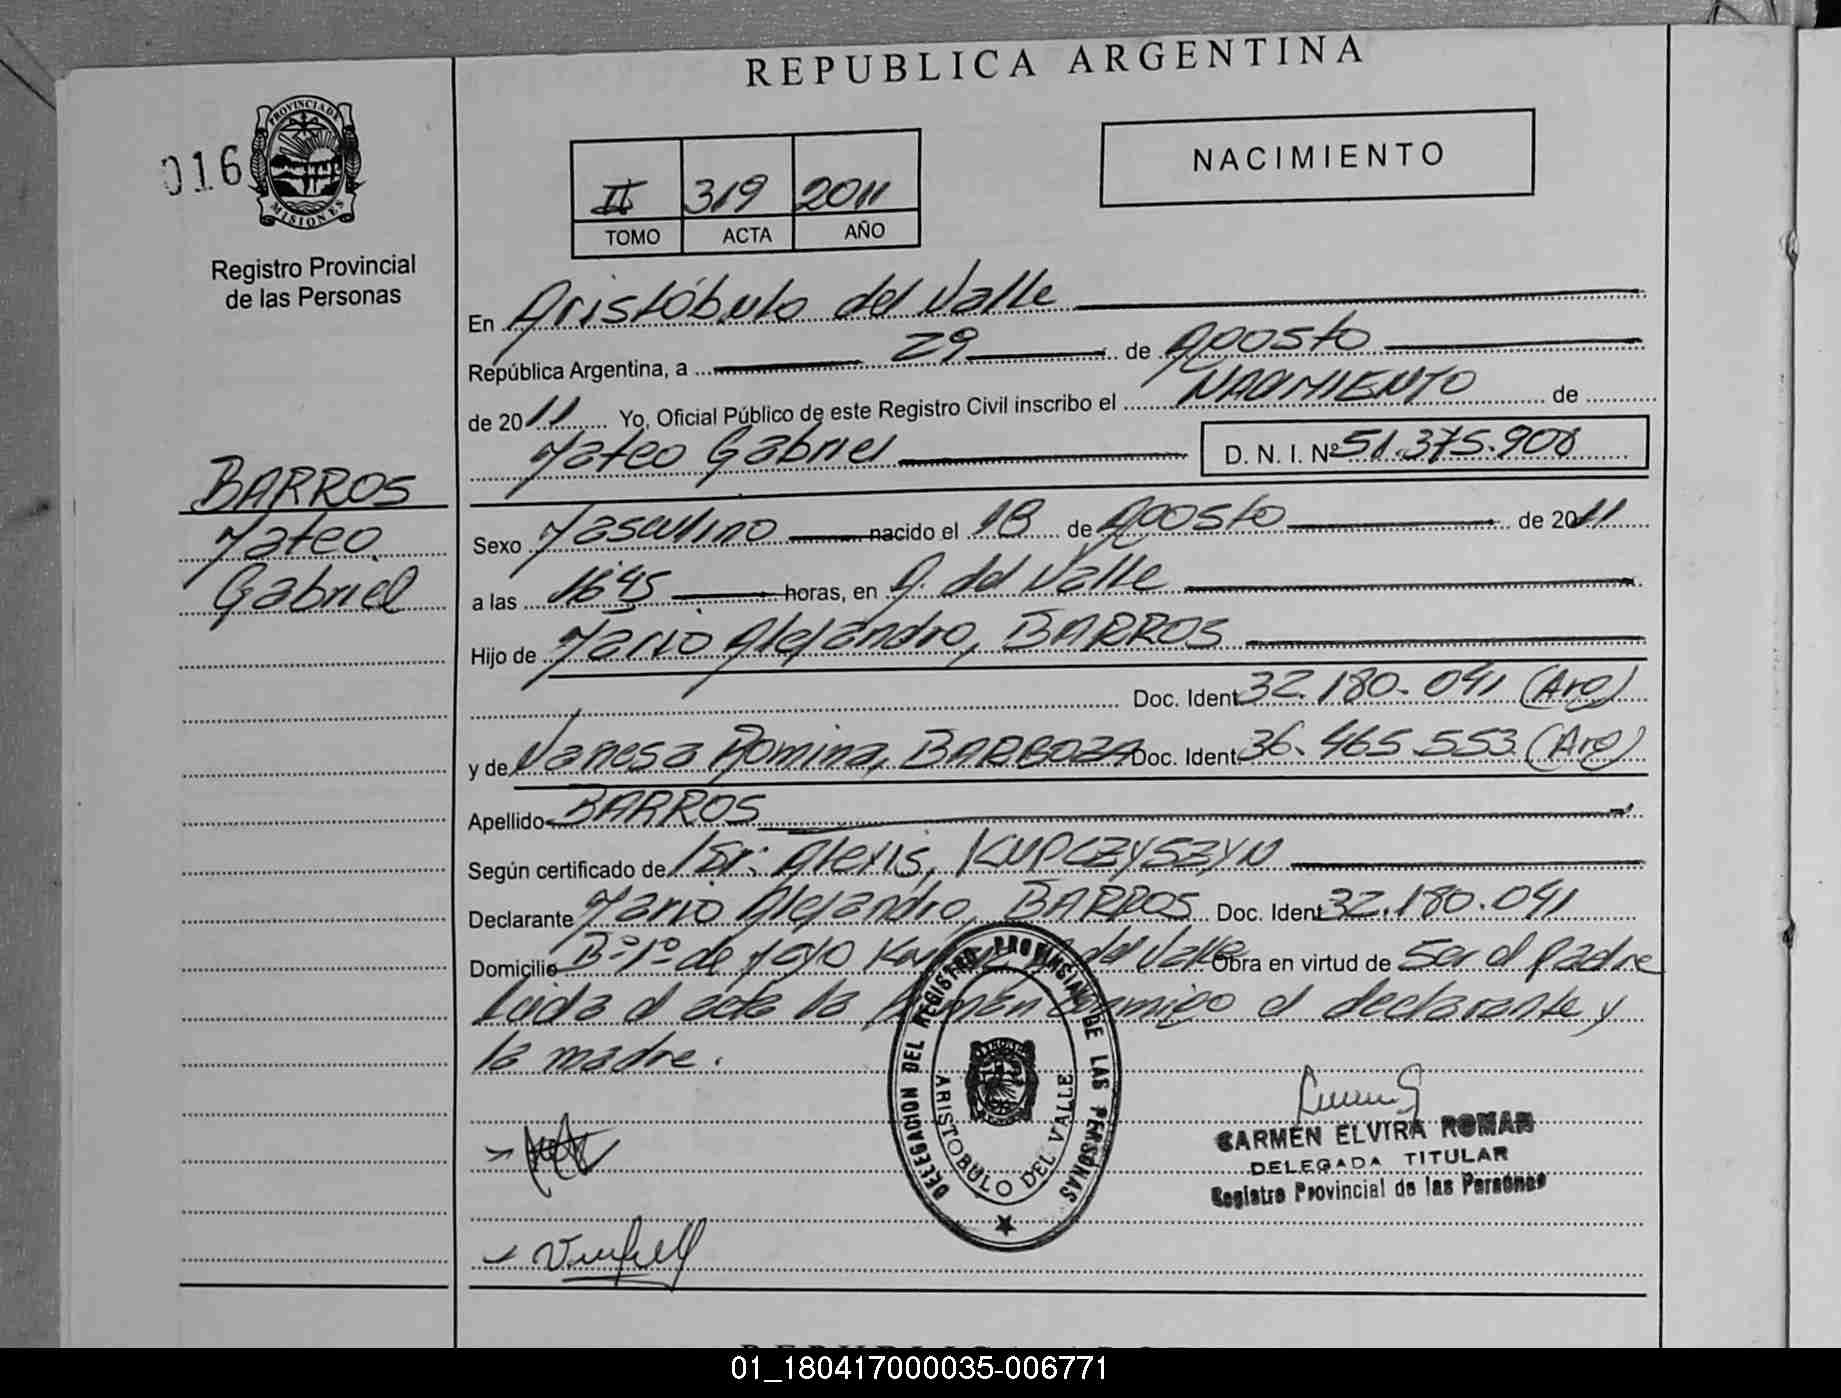 REPUBLICA ARGENTINA
016
PROVINCIA DE MISIONES
Registro Provincial
de las Personas
II 319 2011
TOMO ACTA AÑO
NACIMIENTO
En Aristóbulo del Valle
República Argentina, a 29 de Agosto
de 2011 Yo, Oficial Público de este Registro Civil inscribo el NACIMIENTO de
Mateo Gabriel D. N. I. Nº 51.375.908
BARROS
Mateo
Gabriel
Sexo Masculino nacido el 18 de Agosto de 2011
a las 16:45 horas, en A. del Valle
Hijo de Mario Alejandro, BARROS
Doc. Ident 32.180.041 (Arg)
y de Vanesa Romina, BARBOZA Doc. Ident 36.465.553 (Arg)
Apellido BARROS
Según certificado de Alexis, KUPCZYSZYN
Declarante Mario Alejandro, BARROS Doc. Ident 32.180.041
Domicilio Bº 1º de Mayo del Valle Obra en virtud de Ser el padre
Leida el acta la firman conmigo el declarante y
la madre.
DELEGACION DEL REGISTRO PROVINCIAL DE LAS PERSONAS
ARISTOBULO DEL VALLE
CARMEN ELVIRA ROMAN
DELEGADA TITULAR
Registro Provincial de las Personas
01_180417000035-006771